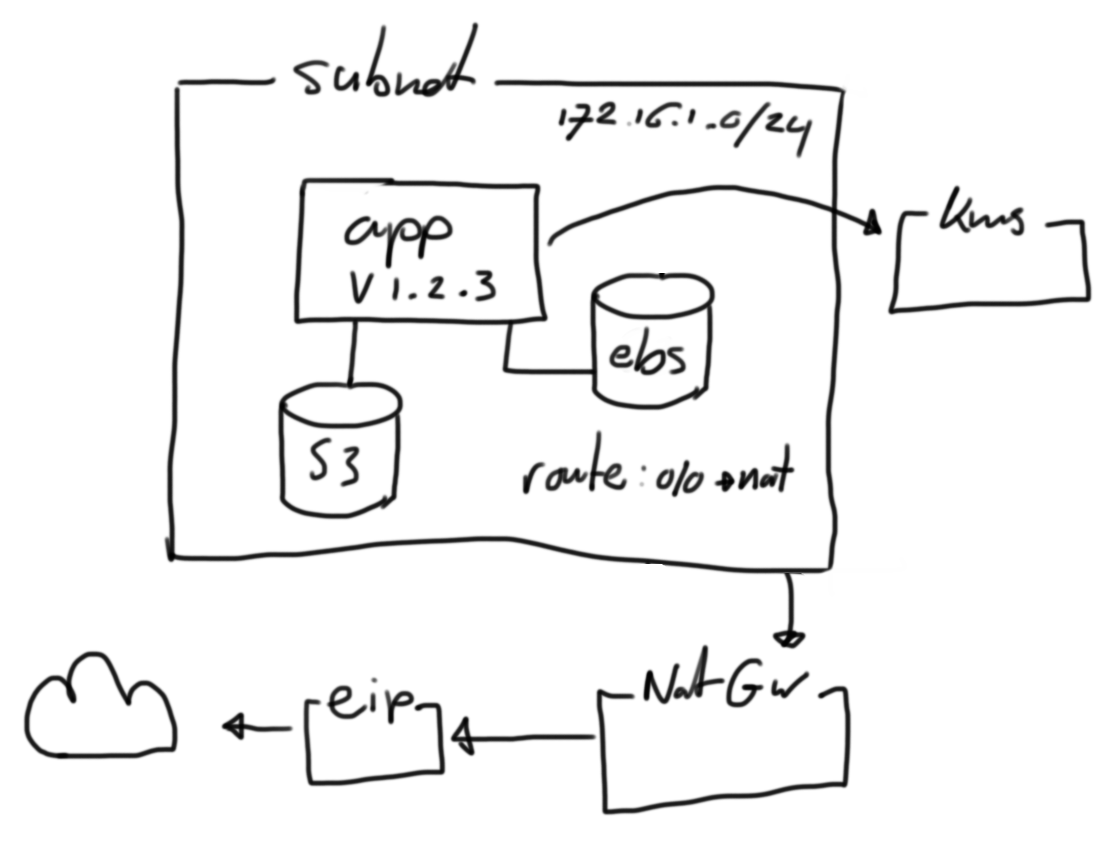 subnet
172.16.1.0/24
app
v1.2.3
kms
ebs
S3
route: 0/0→nat
Nat Gw
eip